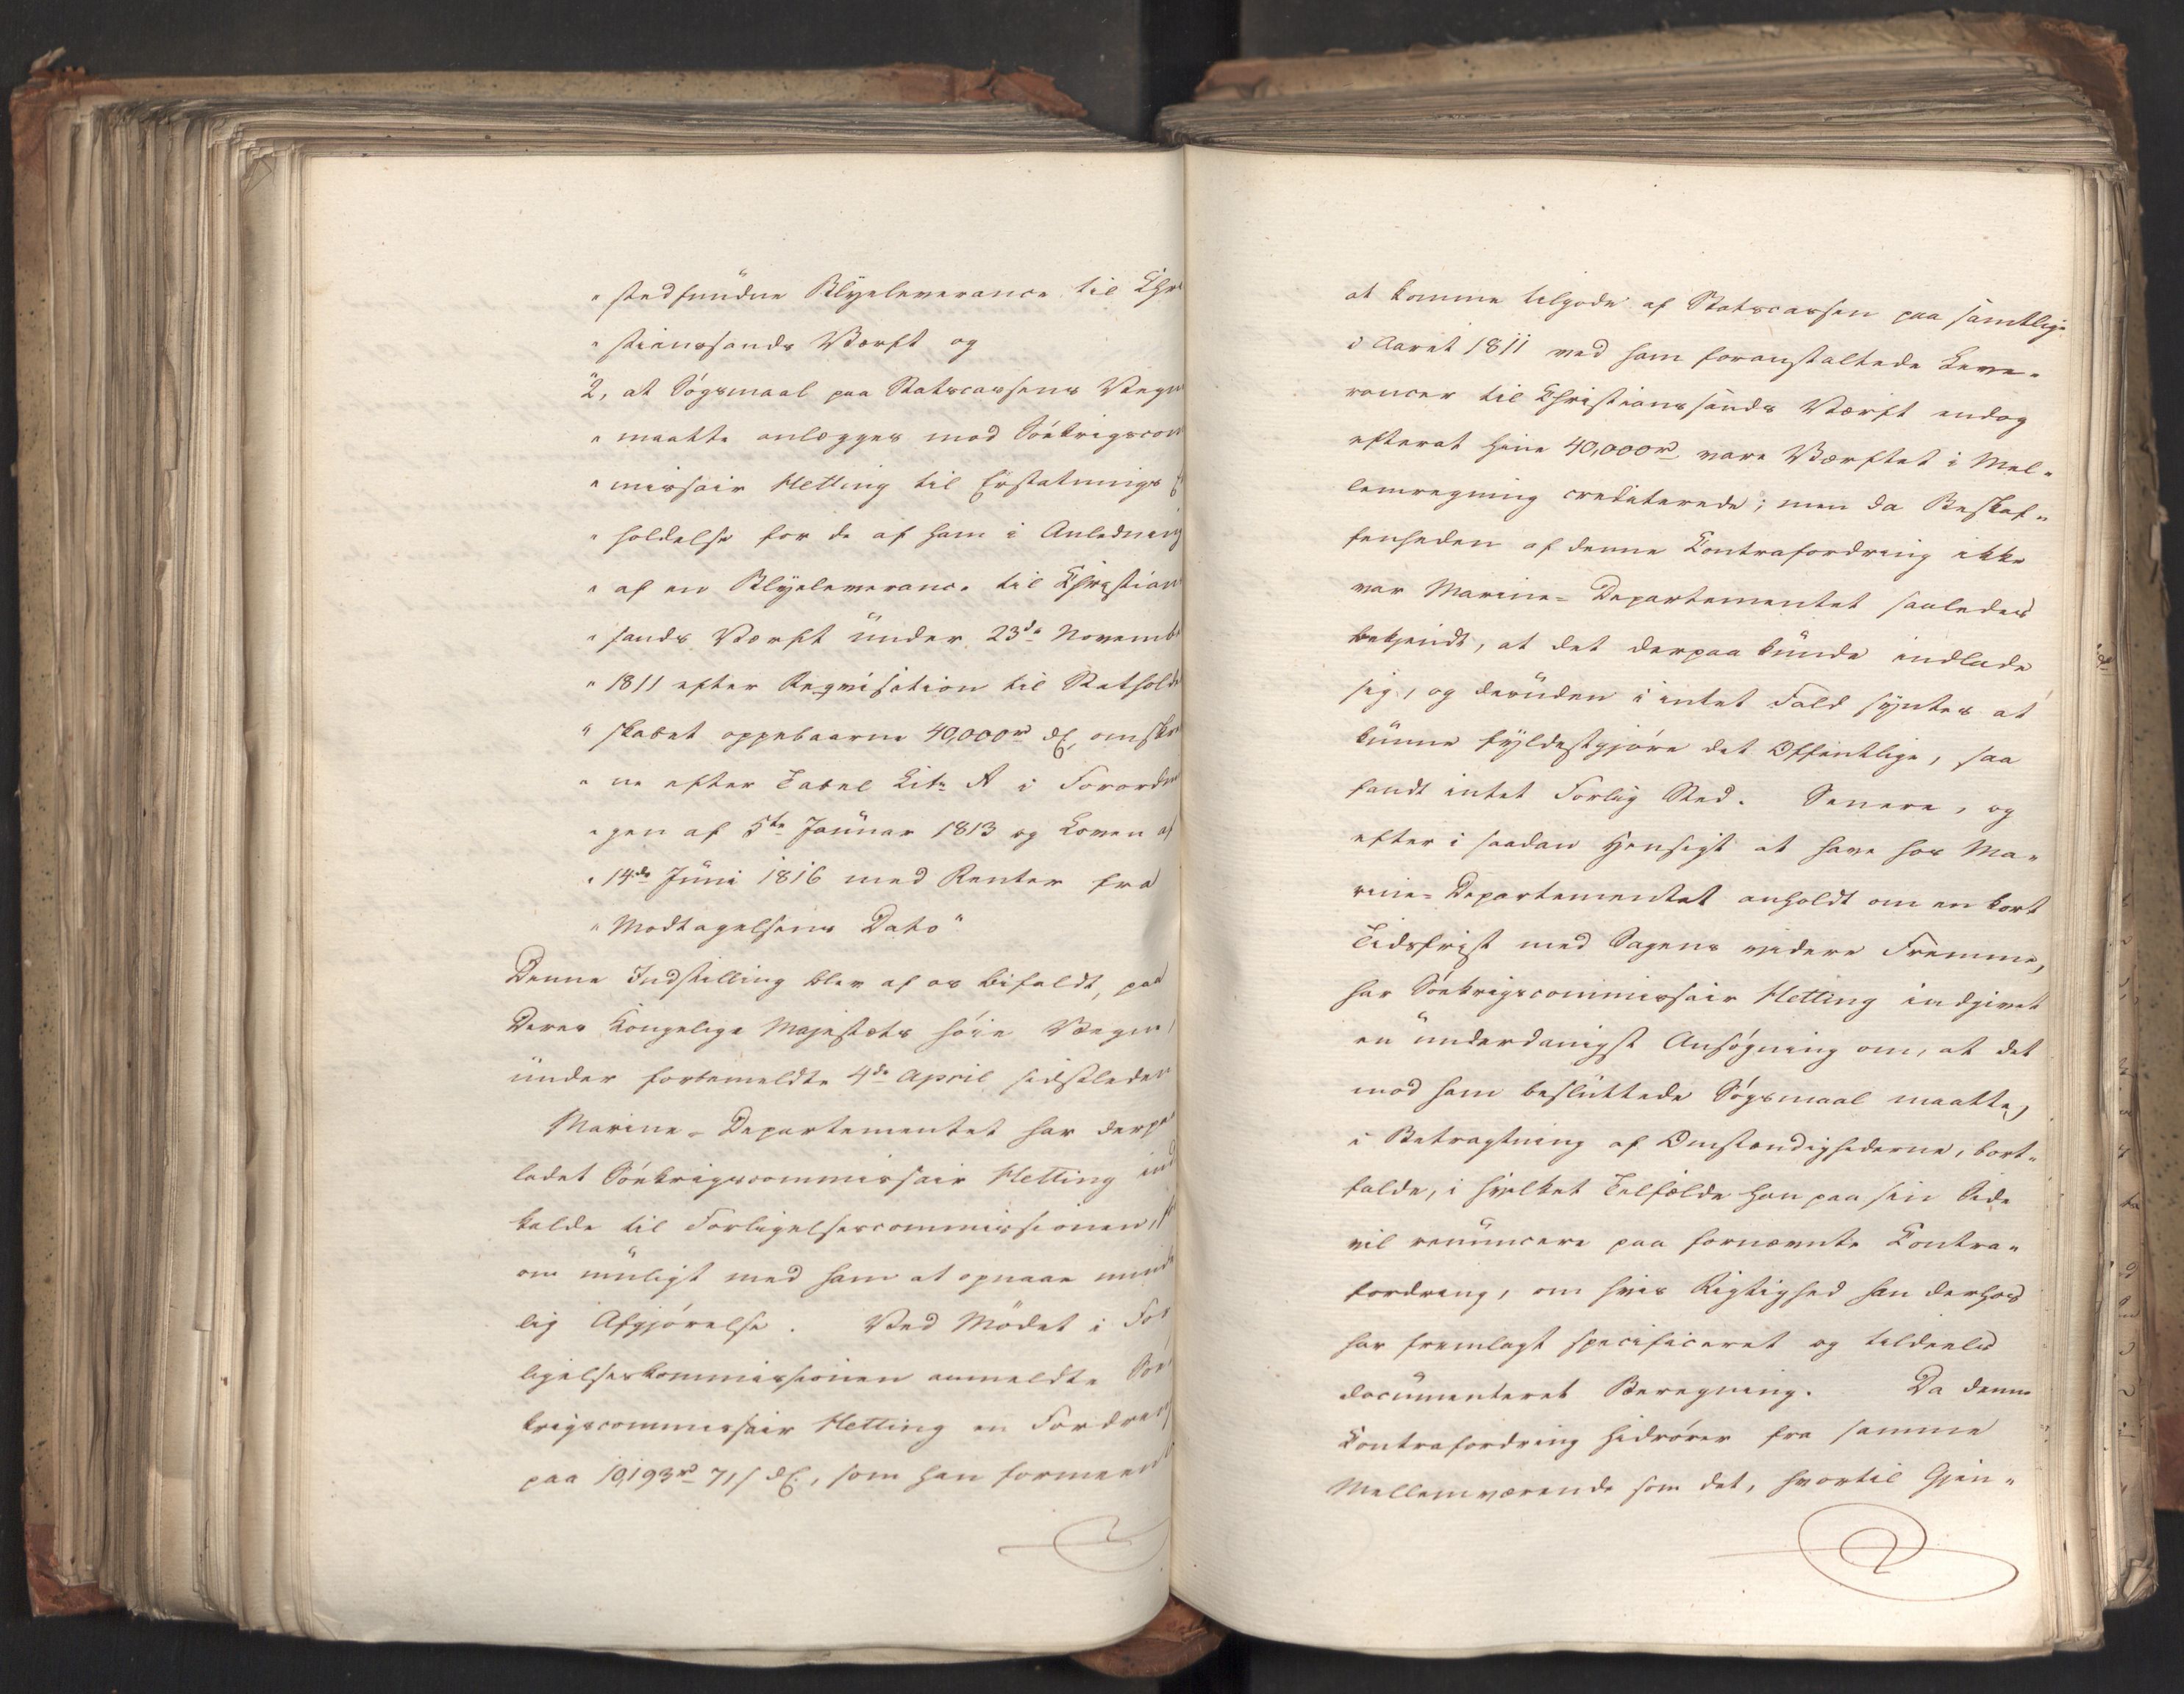 „stedfundne Blyeleverance til Chri
„stianssands Værft og
"2, at Søgsmaal paa Statscassens Vegn
„maatte anlægges mod Søekrigscom
„missair Hetting til Erstatnings
„holdelse for de af ham i Anledning
„af en Blyeleverance til Christian
„sands Værft under 23de Novemb
„1811 efter Reqvisition til Statholde
„skabet oppebaarne 40,000rd DC, omskre
„ne efter Tabel Litr A i Forordni
„gen af 5te Januar 1813 og Loven af
„14de Juni 1816 med Renter fra
„Modtagelsens Dato"
Denne Indstilling blev af os bifaldt, paa
Deres Kongelige Majestæts høie Vegne,
under forbemeldte 4de April sidstleden
Marine-Departementet har derpaa
ladet Søekrigscommissair Hetting ind
kalde til Forligelsescommissionen, f
om muligt med ham at opnaae mind
lig Afgjørelse. Ved Mødet i For
ligelseskommissionen anmeldte Søe
krigscommissair Hetting en Fordring
paa 10,193rd 71s DC, som han formeent
at komme tilgode af Statscassen paa samtlige
i Aaret 1811 ved ham foranstaltede Leve„
rancer til Christianssands Værft endog
efterat hine 40,000rd vare Værftet i Mel„
lemregning crediterede; men da Beskaf„
fenheden af denne Contrafordring ikke
var Marine-Departementet saaledes
bekjendt, at det derpaa kunde indlade
sig, og desuden i intet Fald syntes at
kunne fyldestgjøre det Offentlige, saa
fandt intet Forlig Sted. Senere, og
efter i saadan Hensigt at have hos Ma„
rine-Departementet anholdt om en kort
Tidsfrist med Sagens videre Fremme,
har Søekrigscommissair Hetting indgivet
en underdanigst Ansøgning om, at det
mod ham besluttede Søgsmaal maatte,
i Betragtning af Omstændighederne, bort„
falde, i hvilket Tilfælde han paa sin Side
vil renuncere paa fornævnte Contra„
fordring, om hvis Rigtighed han derhos
har fremlagt specificeret og tildeels
documenteret Beregning. Da denne
Contrafordring hidrører fra samme
Mellemværende som det, hvortil Gjen„